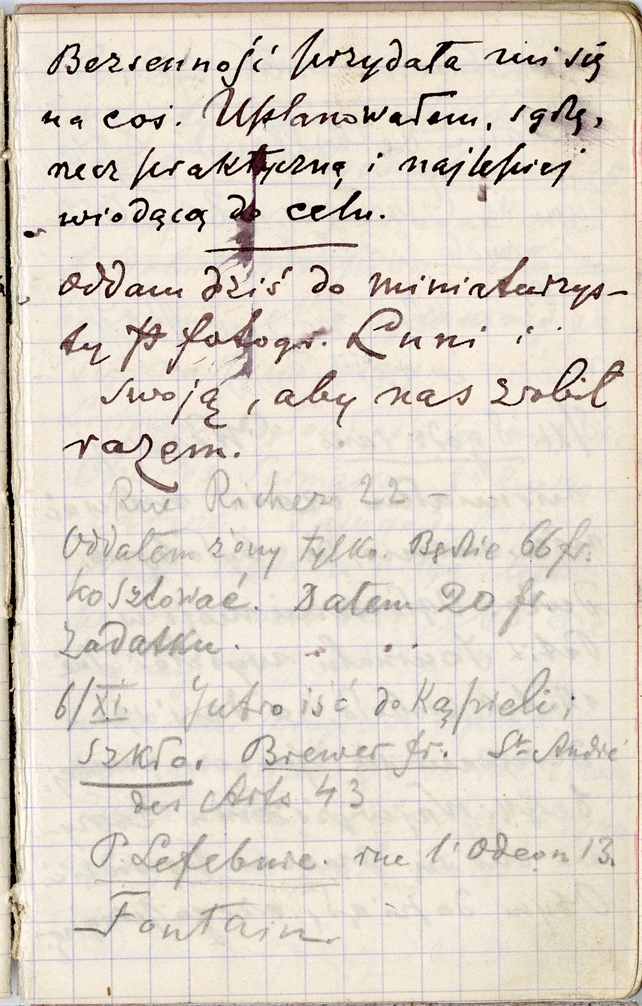 Bezsenność przydała mi się
na coś. Uplanowałem,
rzecz praktyczną i najlepiej
wiodącą do celu.
Oddam dziś do miniaturzys-
ty fotogr. Luni i
swoją, aby nas zrobił
razem.
Rue Richer 22 -
Oddałem żony tylko. Będzie 66 fr.
kosztować. Dałem 20 fr.
zadatku.
6/XI. Jutro iść do Kąpieli;
szkło. Brewer fr. St André
des Arts 43
P. Lefebvre. rue l'Odeon 13.
Fontain.